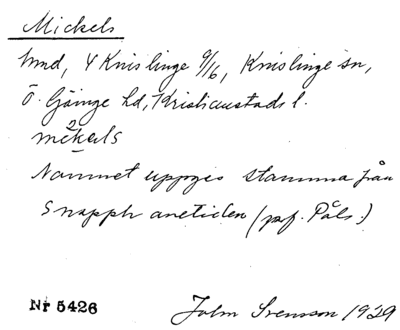 Mickels
hmd, 4 Knislinge 9/16, Knislinge sn,
Ö. Göinge hd, Kristianstads l.
mekals
Namnet uppges stamma från
Snapphanetiden (jmf. Påls.)
Nr 5426 John Svensson 1929